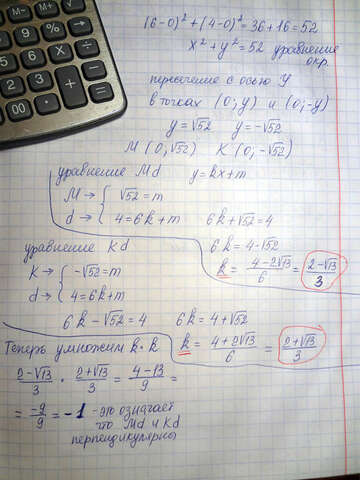 M-
M+
(6-0)² + (4-0)² = 36 + 16 = 52
x² + y² = 52 уравнение
окр.
пересечение с осью y
в точках (0; y) и (0; -y)
y = √52 y = -√52
M (0; √52) K (0; -√52)
уравнение Md y = kx + m
M → { √52 = m
d → { 4 = 6k + m 6k + √52 = 4
6k = 4 - √52
k = (4 - 2√13)/6 = (2 - √13)/3
уравнение Kd
K → { -√52 = m
d → { 4 = 6k + m
6k - √52 = 4 6k = 4 + √52
k = (4 + 2√13)/6 = (2 + √13)/3
Теперь умножим k · k
(2 - √13)/3 · (2 + √13)/3 = (4 - 13)/9 =
= -9/9 = -1 - это означает
что Md и Kd
перпендикулярны